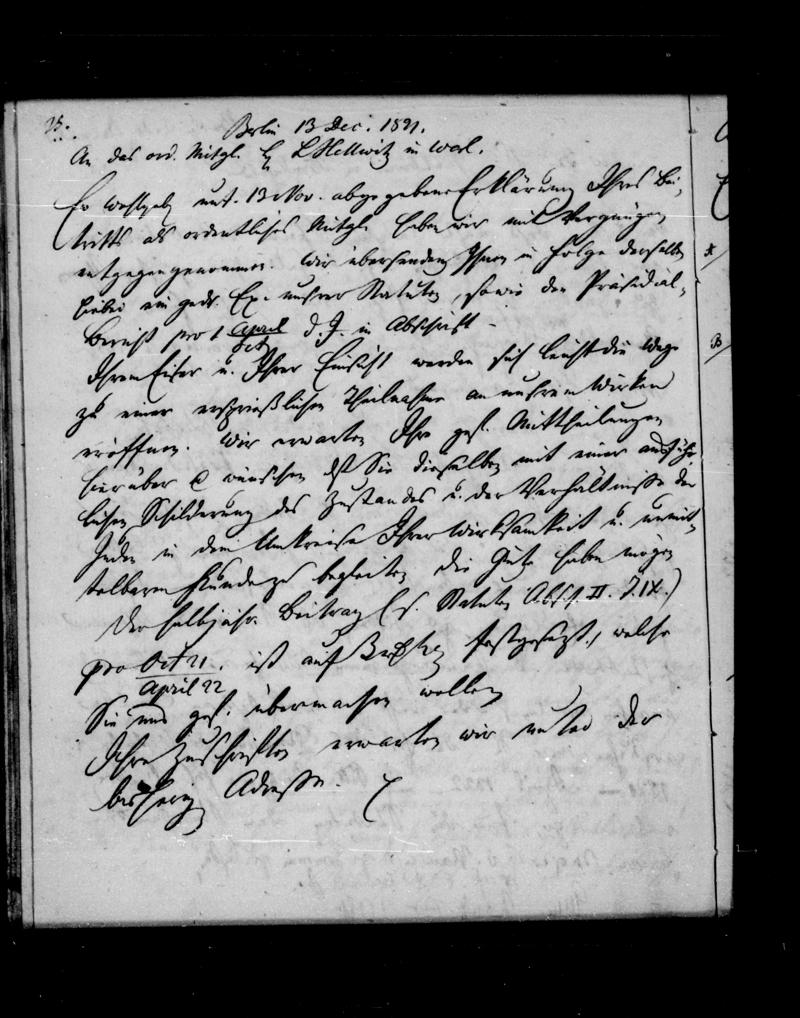 Berlin 13 Dec. 1821.
An das ord. Mitgl. H L Hellwitz in Werl.
Ew Wohlgeb unt. 13 Nov. abgegebene Erklärung Ihres Bei-
tritts als ordentliches Mitgl. haben wir mit Vergnügen
entgegengenommen. Wir übersenden Ihnen in Folge derselben
hiebei ein gedr. Ex. unsrer Statuten, sowie den Präsidial-
Bericht pro 1 April/Oct d. J. in Abschrift –
Ihrem Eifer u. Ihrer Einsicht werden sich leicht die Wege
zu einer ersprießlichen Theilnahme an unserm Wirken
eröffnen. Wir erwarten Ihre gef. Mittheilungen
hierüber & wünschen dß Sie dieselben mit einer ausführ-
lichen Schilderung des Zustandes u. der Verhältnisse der
Juden in dem Umkreise Ihrer Wirksamkeit u. unmit-
telbaren Kunde zu begleiten die Güte haben mögen
Der halbjähr. Beitrag (s. Statuten Abschn. II. §. IX.)
pro Oct 21./April 22 ist auf festgesetzt, welche
Sie uns gef. übermachen wollen
Ihre Zuschriften erwarten wir unter der
bisherig Adresse.